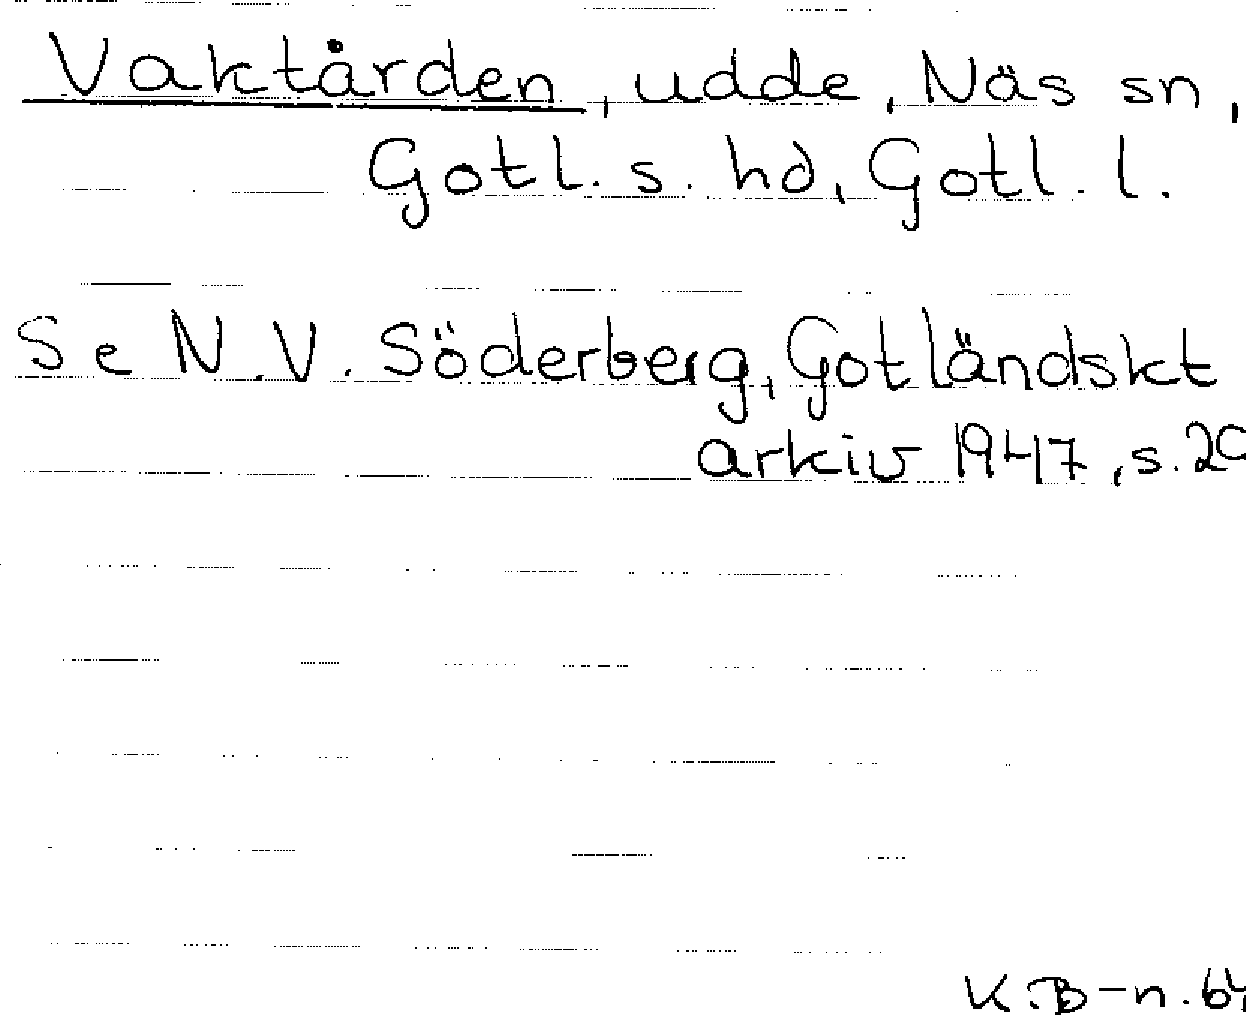 Vaktården, udde, Näs sn,
Gotl. s. hd, Gotl. l.
Se N.V. Söderberg, Gotländskt
arkiv 1947, s.
K.B-n.